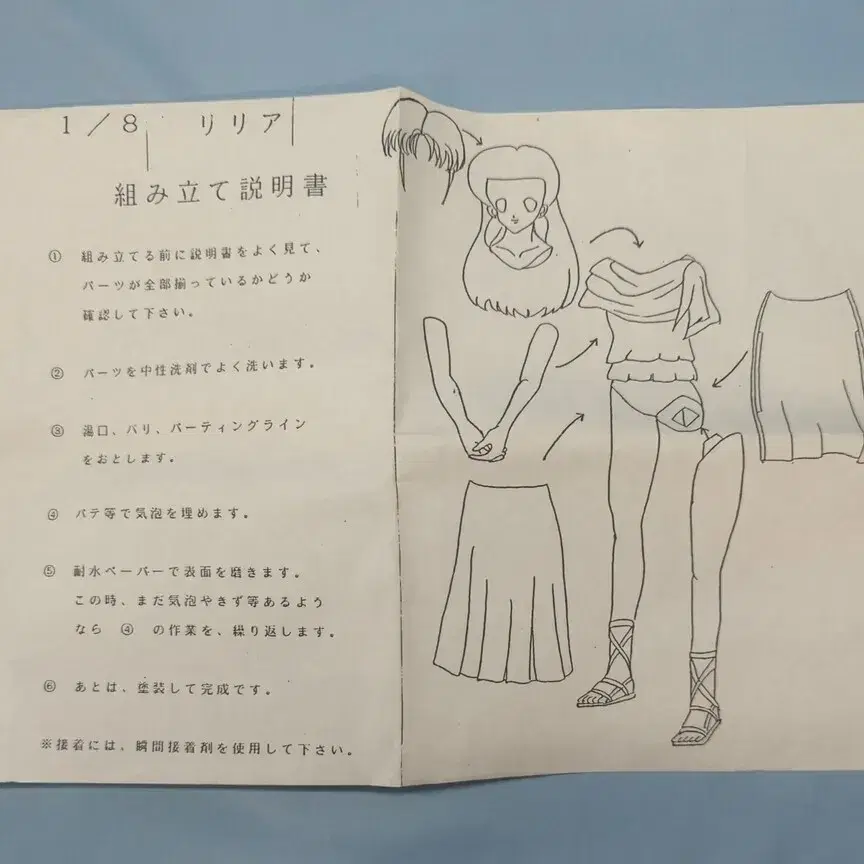 1／8　リリア
組み立て説明書
① 組み立てる前に説明書をよく見て、
パーツが全部揃っているかどうか
確認して下さい。
② パーツを中性洗剤でよく洗います。
③ 湯口、バリ、パーティングライン
をおとします。
④ パテ等で気泡を埋めます。
⑤ 耐水ペーパーで表面を磨きます。
この時、まだ気泡やきず等あるよう
なら ④ の作業を、繰り返します。
⑥ あとは、塗装して完成です。
※接着には、瞬間接着剤を使用して下さい。